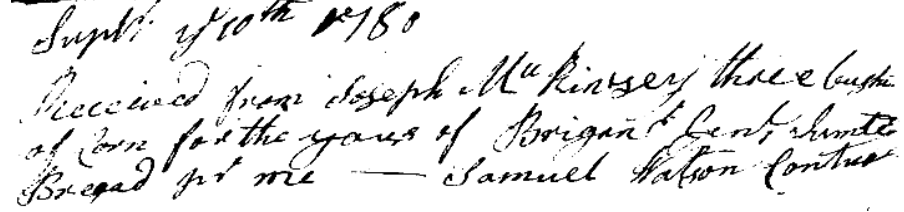 Septr. ye 10th 1780
Received from Joseph McKinsey three bushs
of Corn for the youse of Brigant Genl. Sumter
Bregad pr me — Samuel Watson Contrer